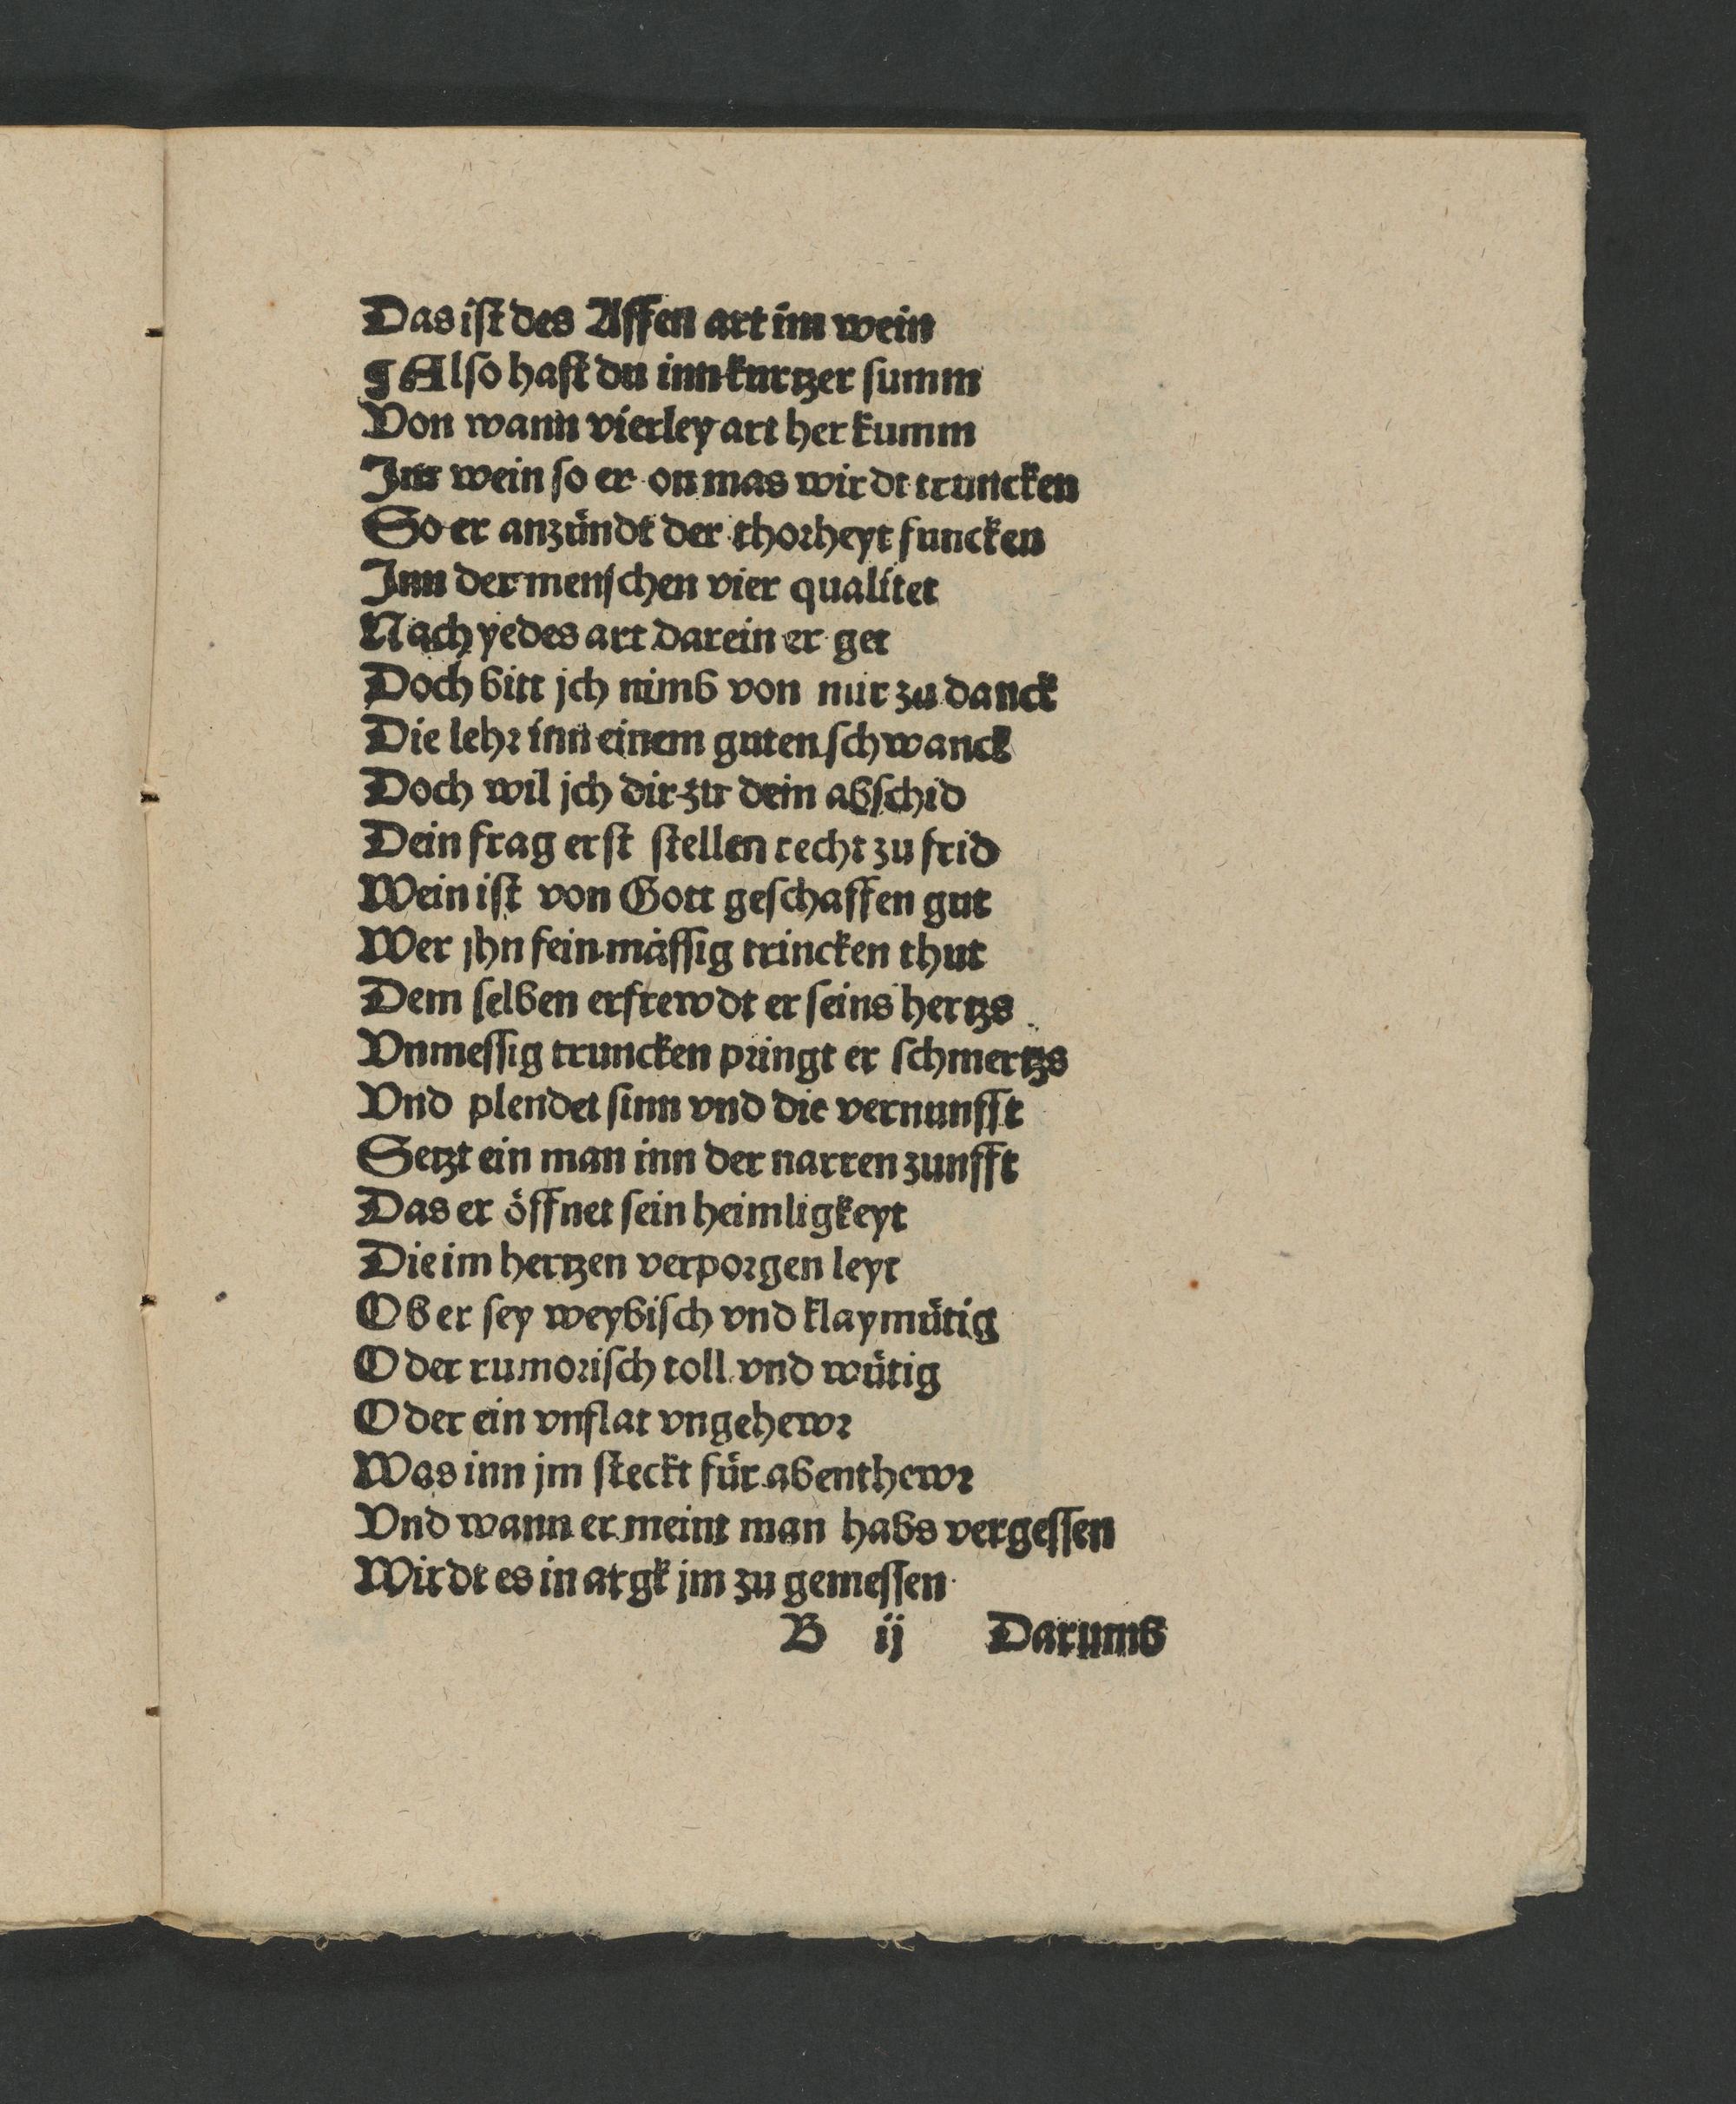 Das iſt des Affen art im wein
¶ Alſo haſt du inn kurtzer ſumm
Von wann vierley art her kumm
Im wein ſo er on mas wirdt truncken
So er anzündt der thorheyt funcken
Inn der menſchen vier qualitet
Nach yedes art darein er get
Doch bitt jch nimb von mir zu danck
Die lehr inn einem guten ſchwanck
Doch wil jch dir zu dein abſchid
Dein frag erſt ſtellen recht zu frid
Wein iſt von Gott geſchaffen gut
Wer jhn fein mäſſig trincken thut
Dem ſelben erfrewdt er ſeins hertzs
Vnmeſſig truncken pringt er ſchmertzs
Vnd plendet ſinn vnd die vernunfft
Setzt ein man inn der narren zunfft
Das er öffnet ſein heimligkeyt
Die im hertzen verporgen leyt
Ob er ſey weybiſch vnd klaymütig
Oder rumoriſch toll vnd wütig
Oder ein vnflat vngehewr
Was inn jm ſteckt für abenthewr
Vnd wann er meint man habs vergeſſen
Wirdt es in argk jm zu gemeſſen
B ij Darumb